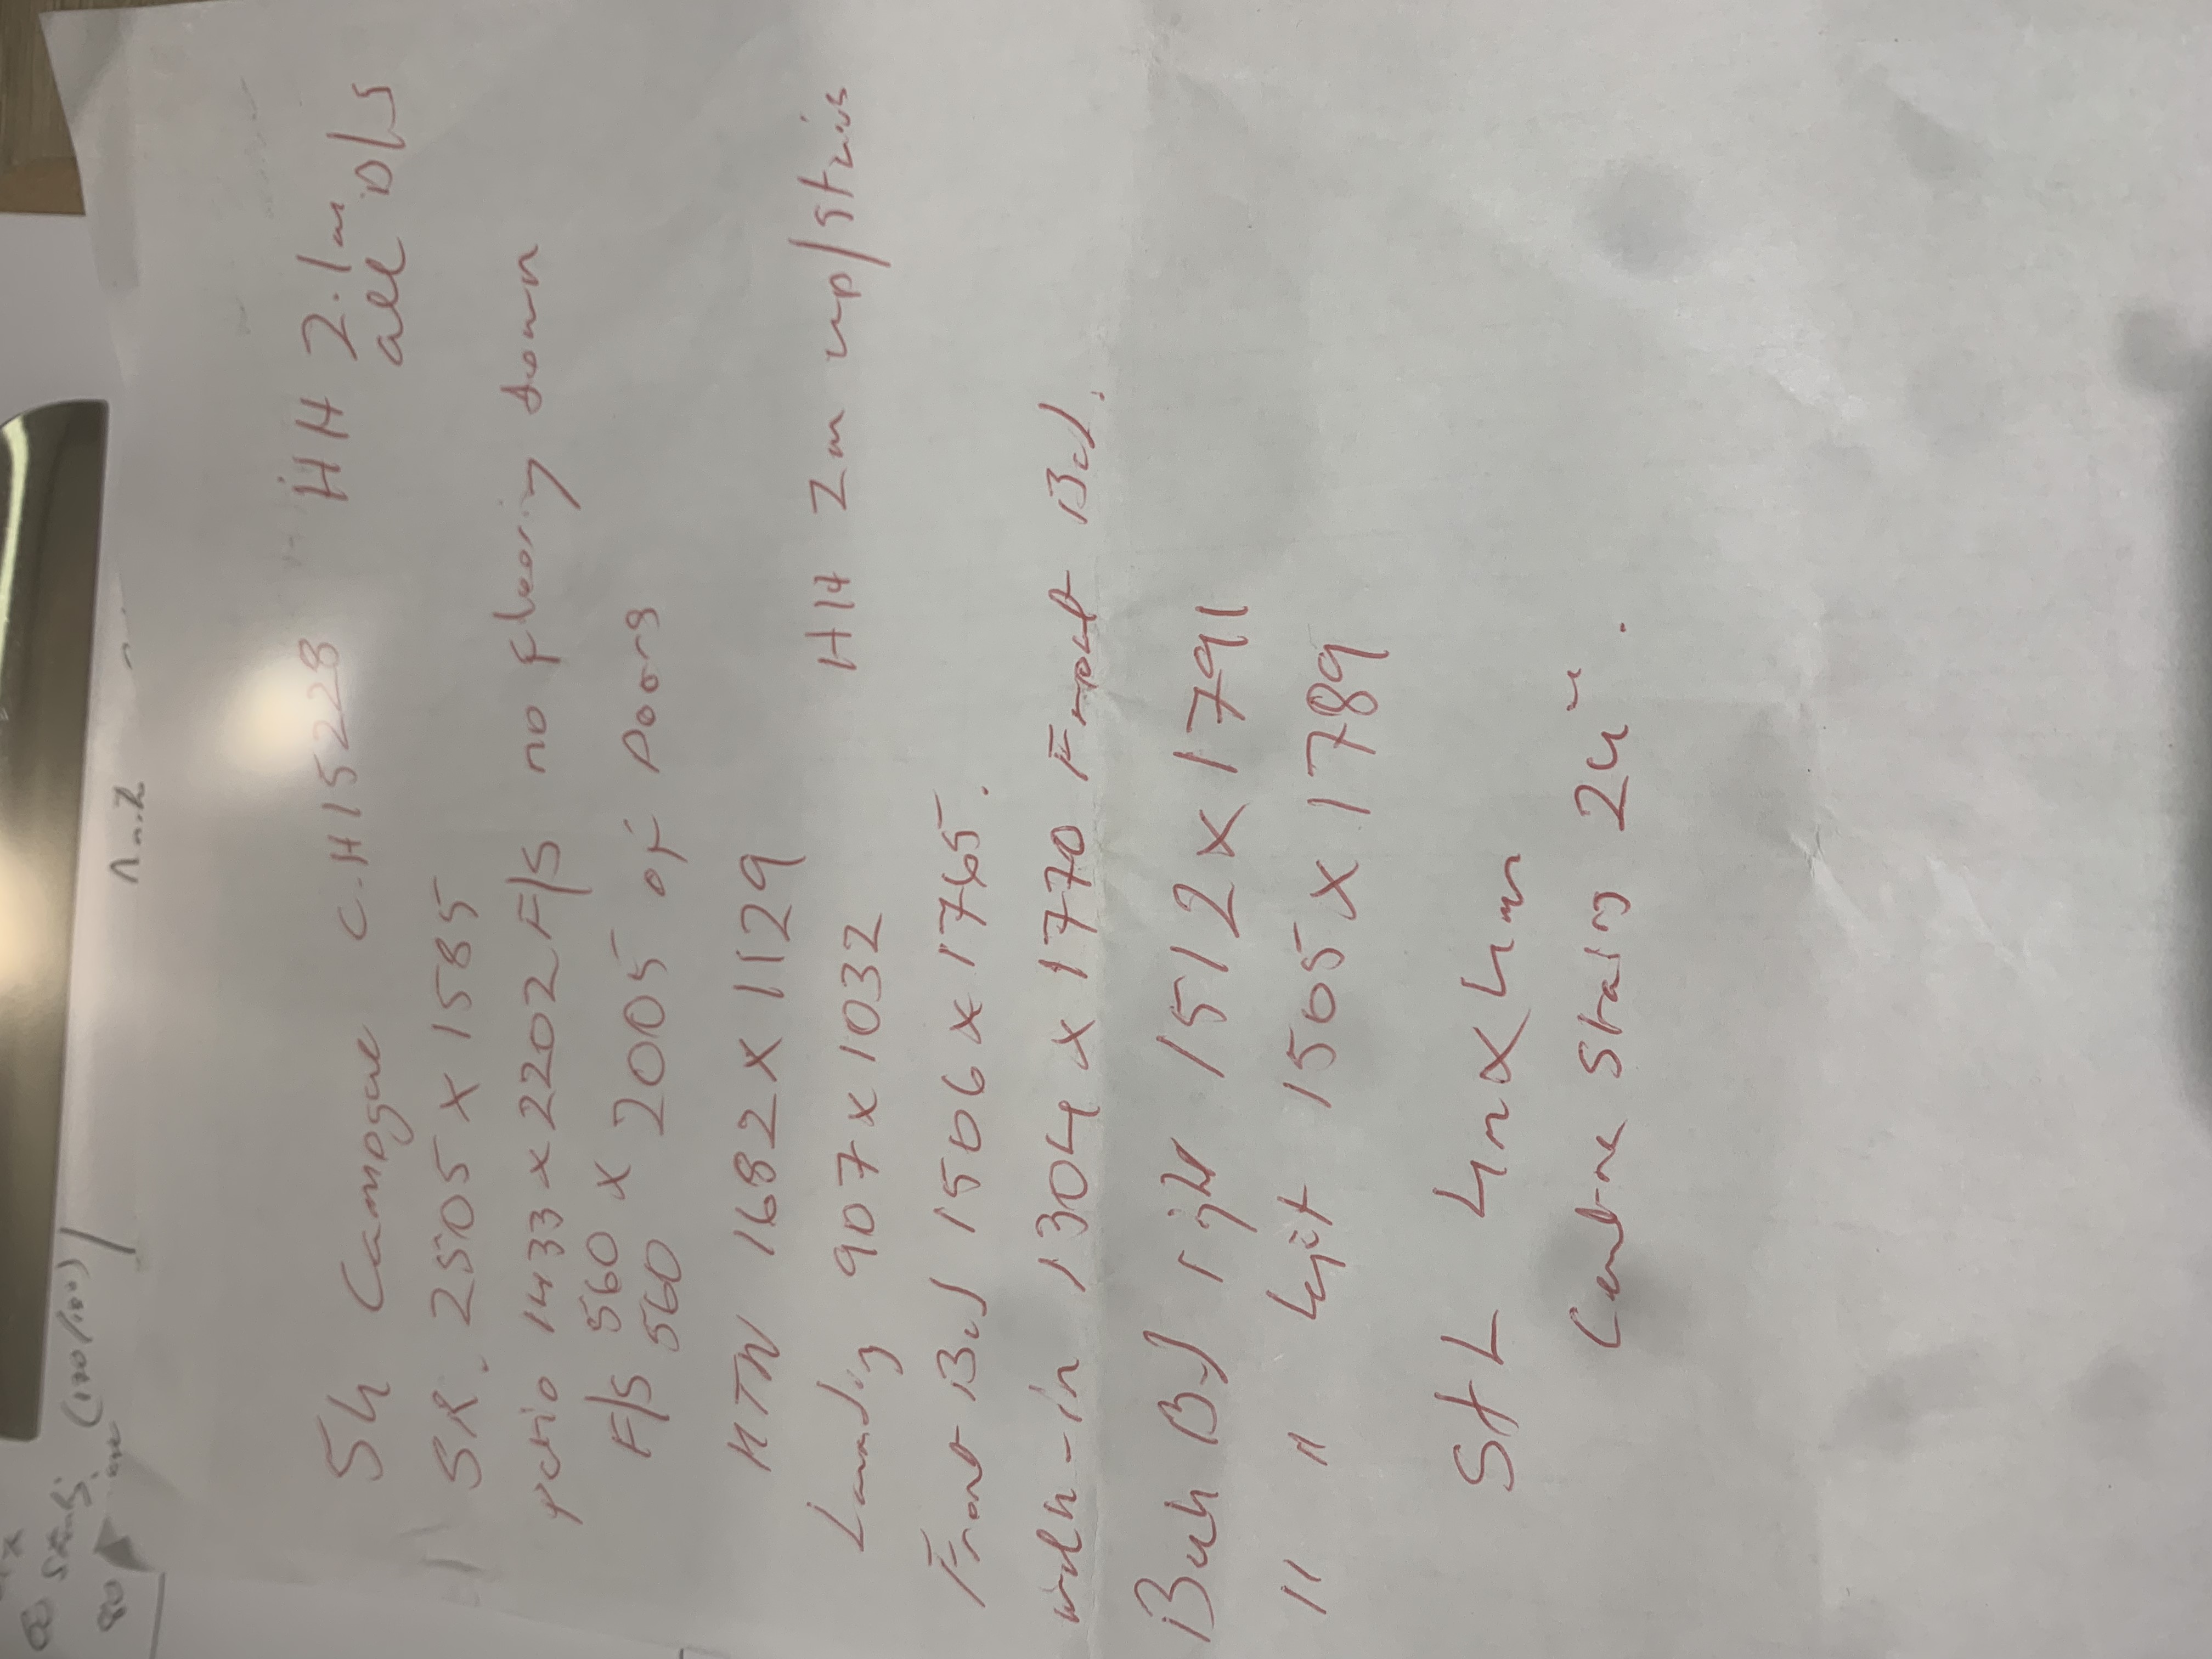 54 Camogue C.H15228 HH 2.1m
all D/S
SR. 2505 X 1585
patio 1433 x 2202 F/S no flooring down
F/S 560 X 2005 of Doors
560
KTN 1682 X 1129
Landing 907 x 1032 HH 2m up/stairs
Front Bed 1506 x 1765.
walk-in 1304 x 1770 Front Bed.
Back Bed right 1512 X 1791
" " left 1505 X 1789
S+L 4m X 4m
Centre Stairs 24"
(100/100)
80